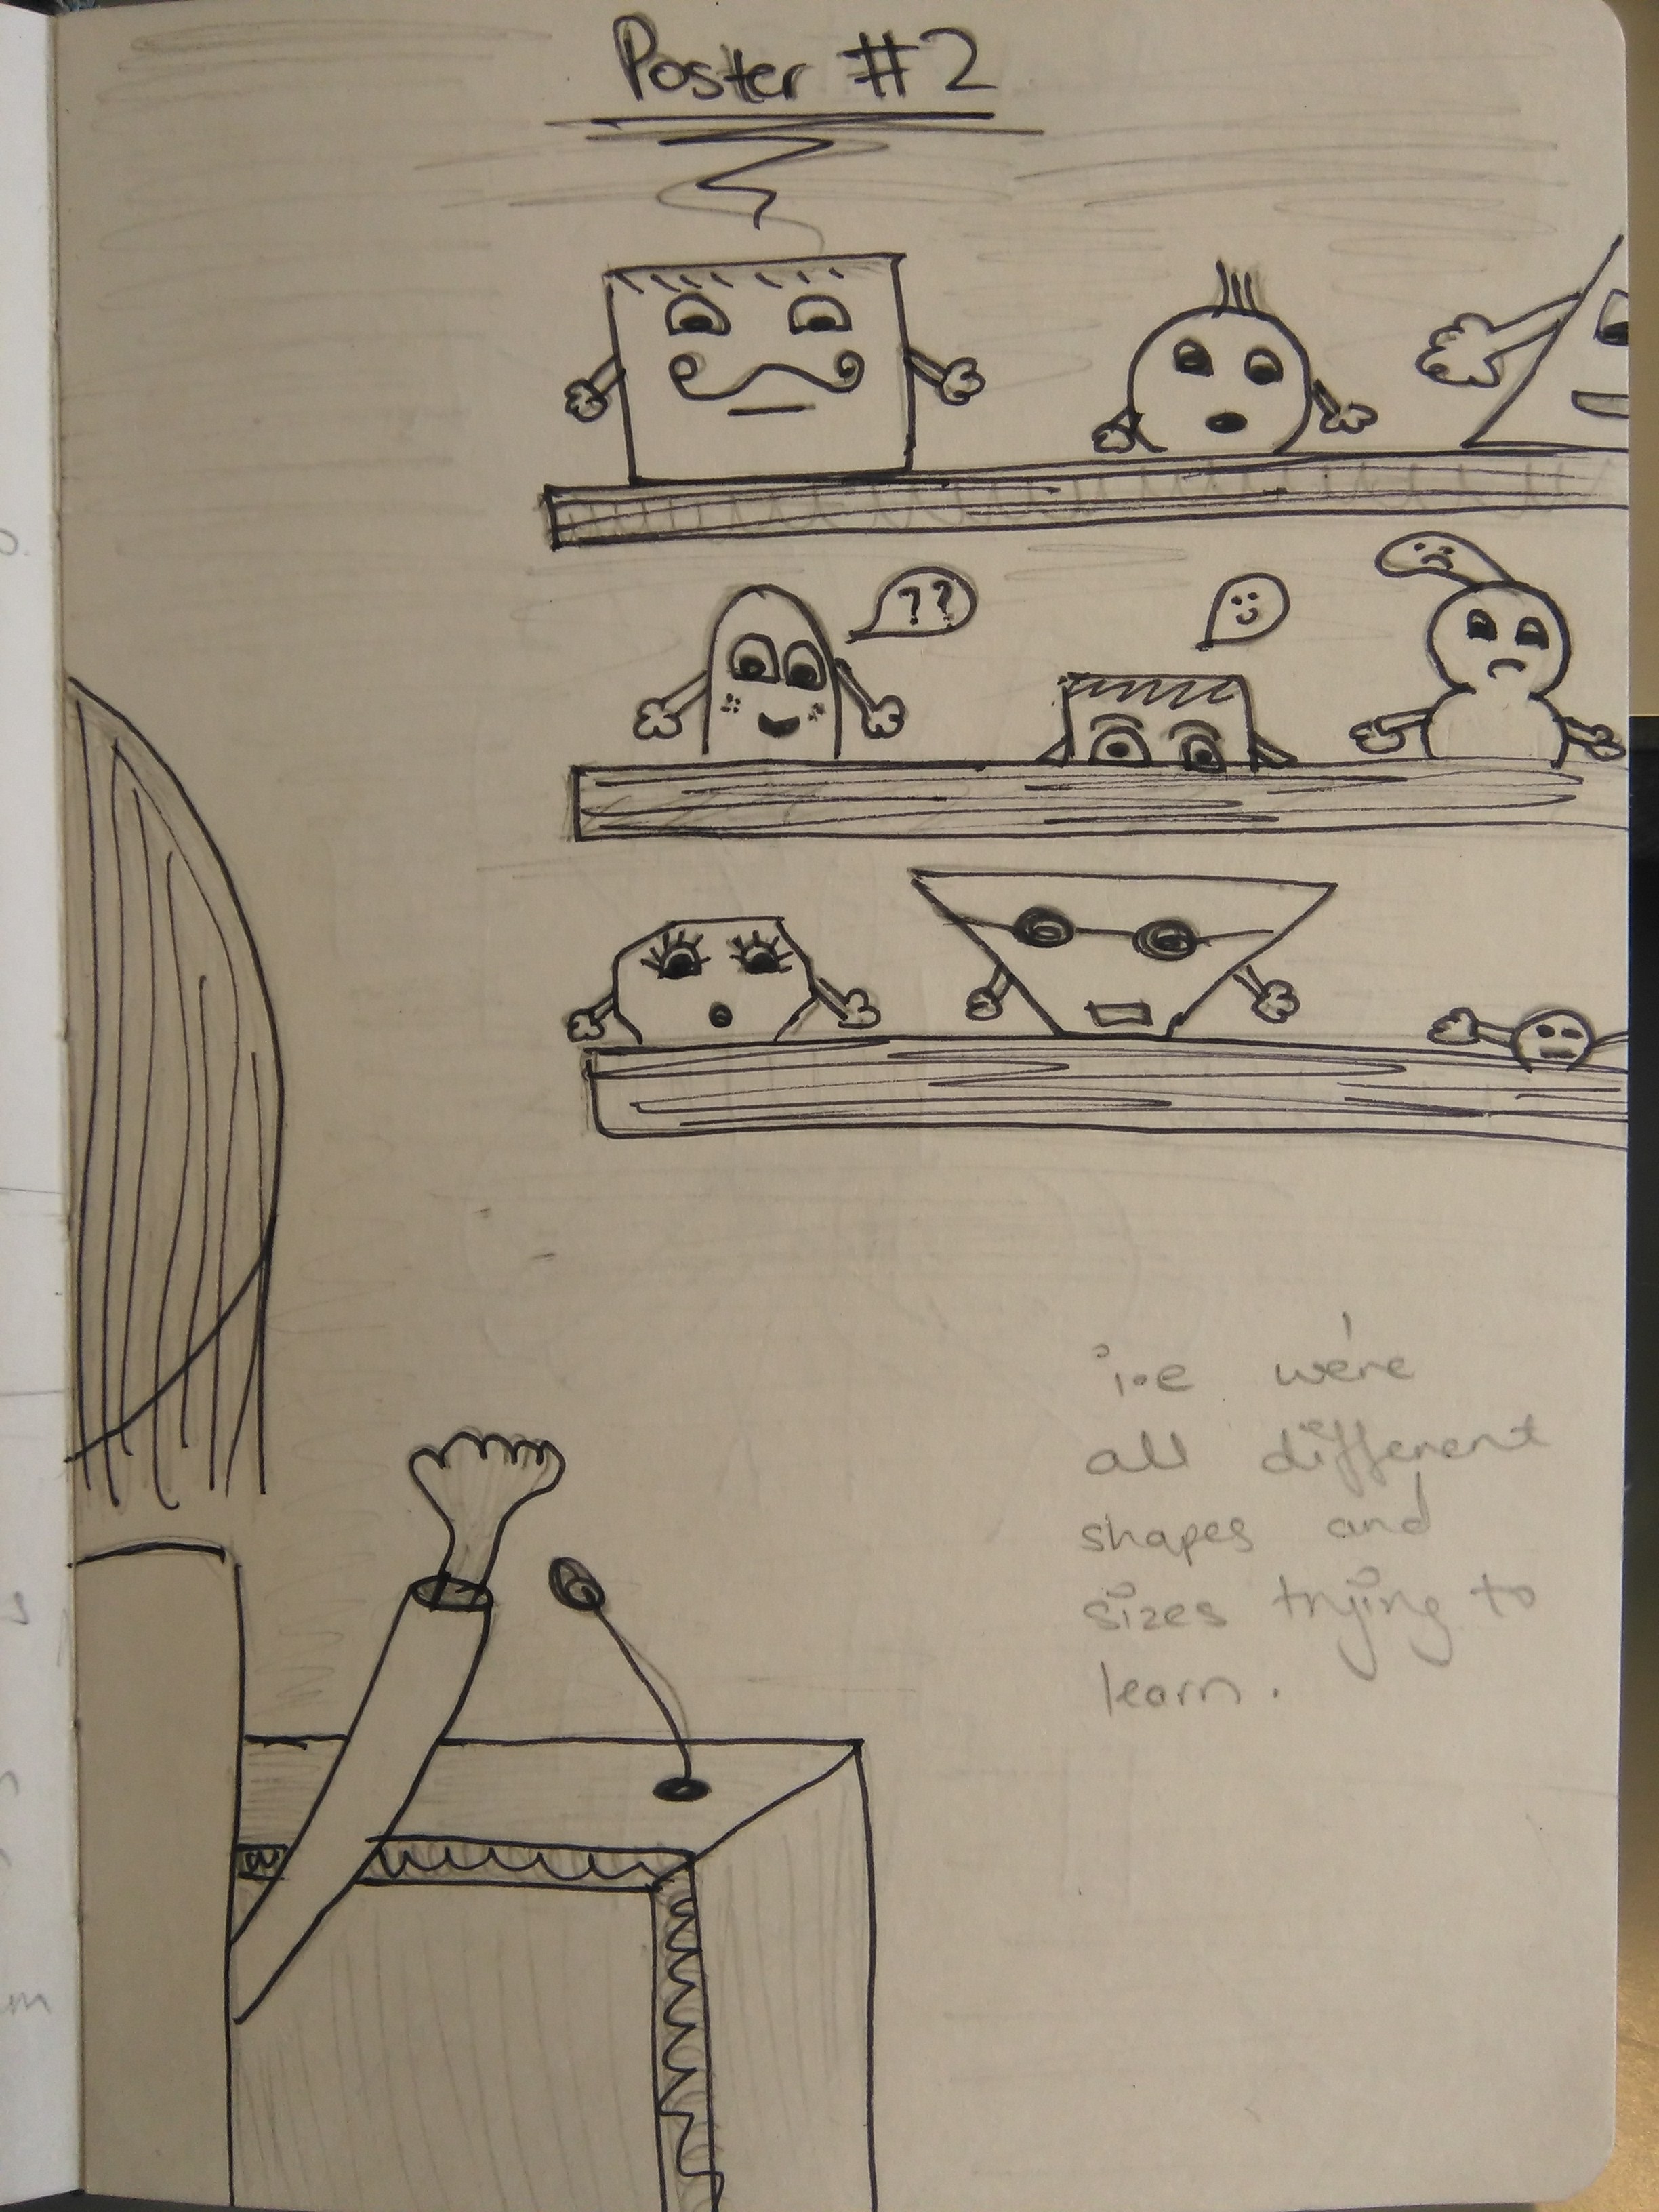 Poster #2
??
i.e we're
all different
shapes and
sizes trying to
learn.